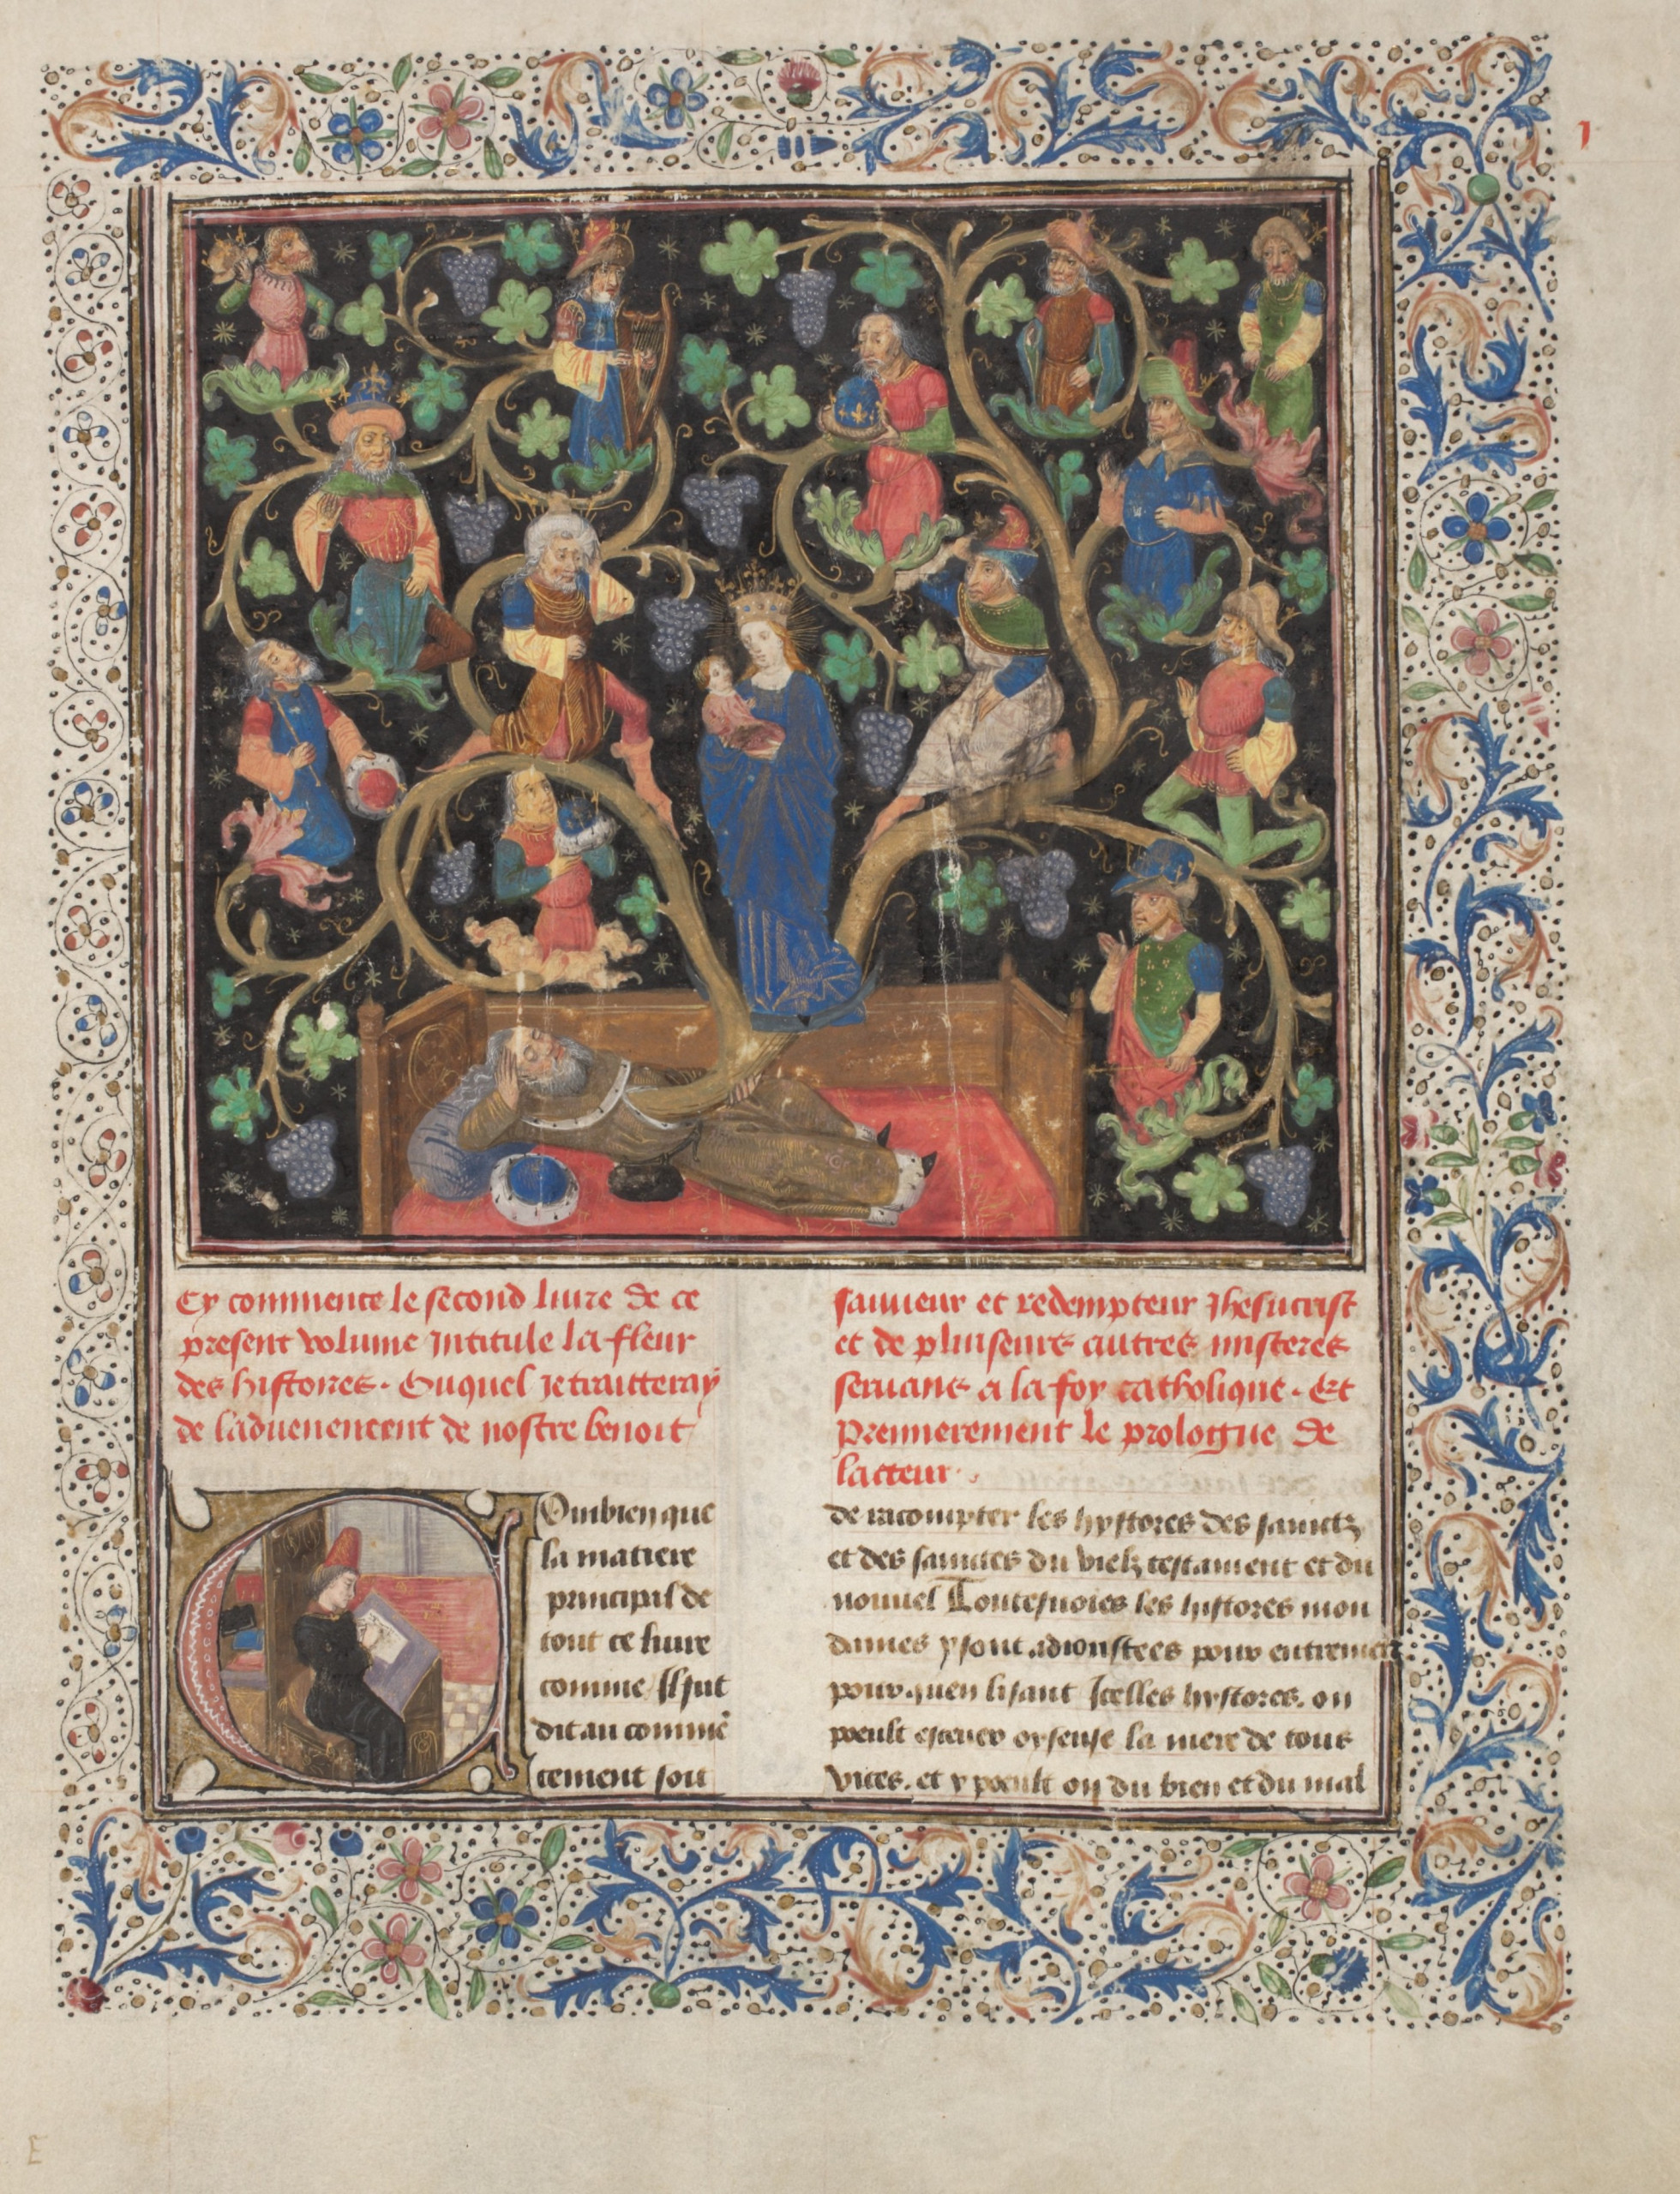 1
Cy commence le second liure de ce
present volume Intitule la fleur
des histoires. Ouquel ie traitteray
de laduenement de nostre benoit
sauueur et redempteur Jhesucrist
et de pluiseurs autres misteres
seruans a la foy catholique. Et
Premierement le prologue de
lacteur.
Combien que
la matiere
principal de
tout ce liure
comme Il fut
dit au commē
cement soit
de racompter les hystores des sainctz
et des sainctes du vielz testament et du
nouuel Toutesuoies les histores mon
daines y sont adioustees pour entremectz
pour quen lisant Icelles hystores. on
poeult escieuer oyseuse la mere de tous
vices. et y poeult on du bien et du mal
E